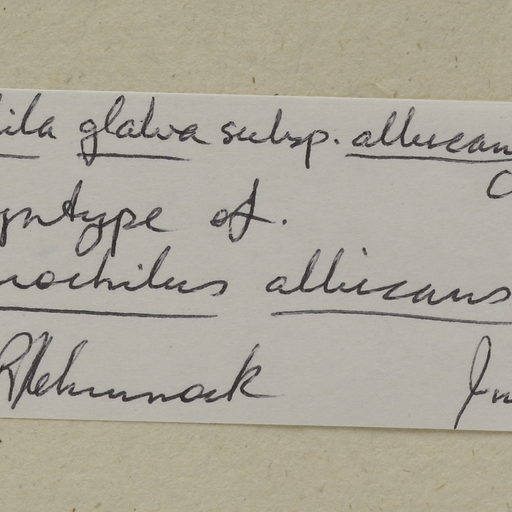 ila glabra subsp. albicans
C
yntype of.
rochilus albicans
R Schunack Jun